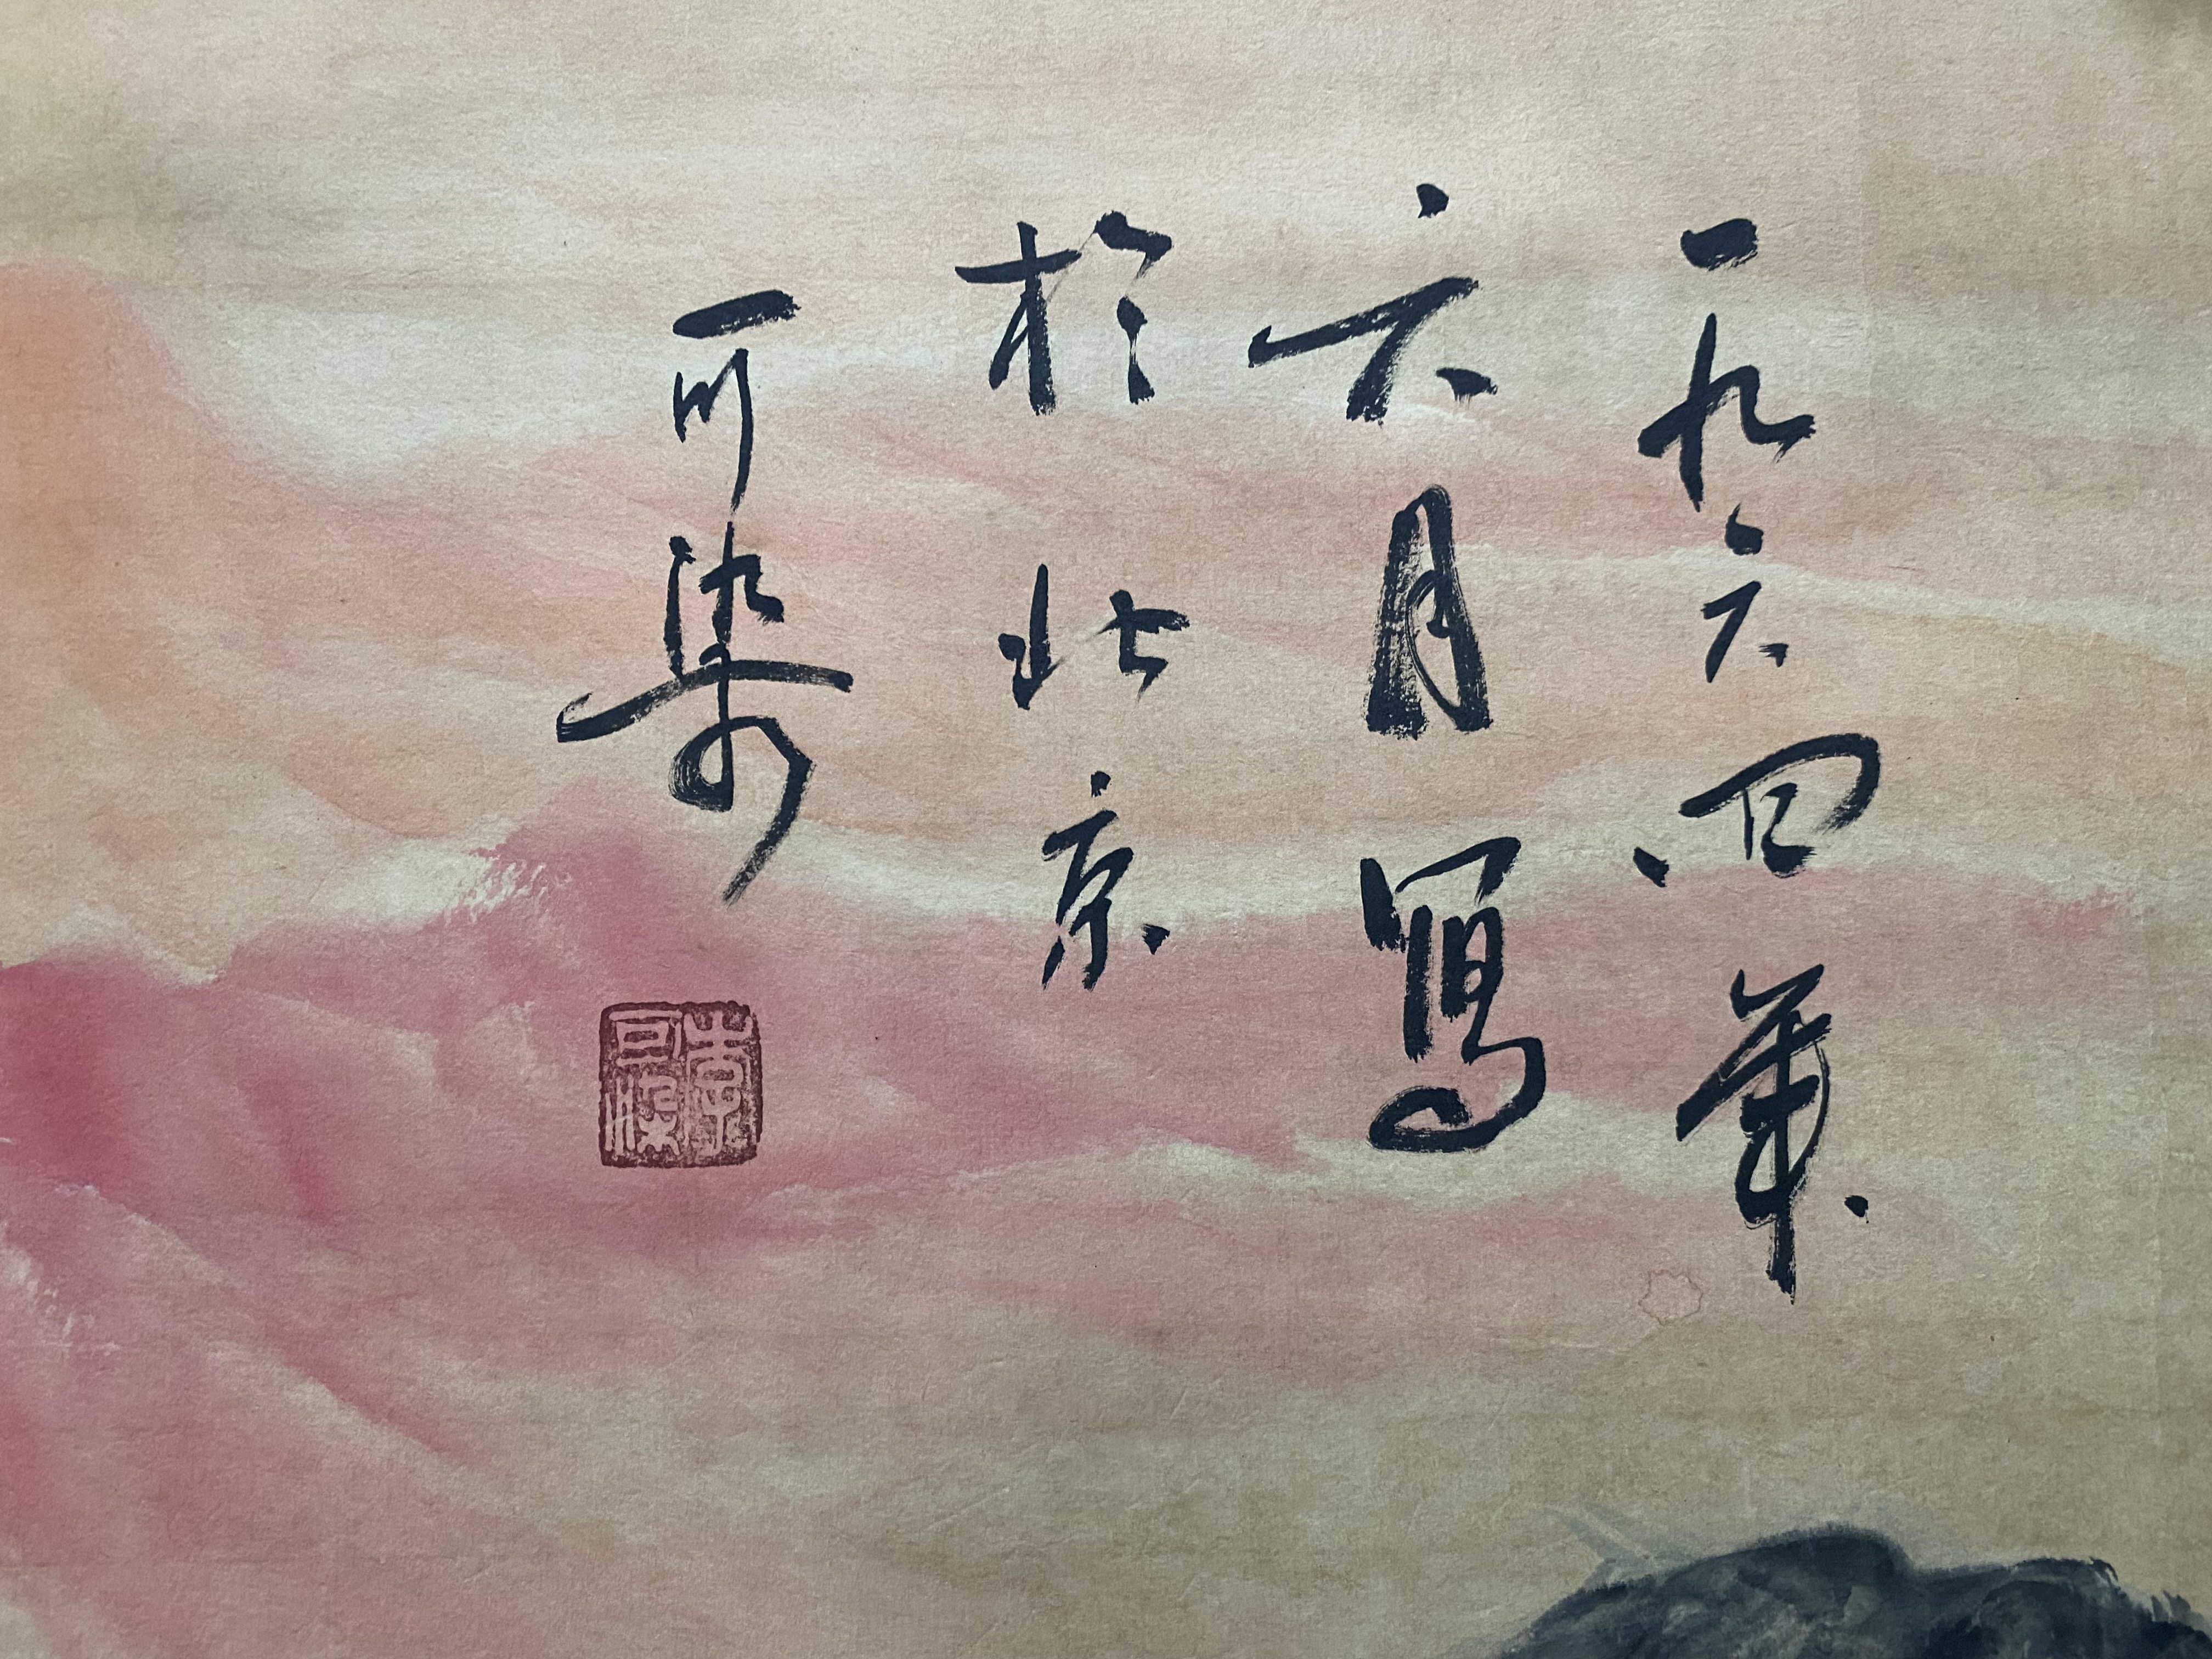 一九六四年
六月寫
於北京
可染
李可染